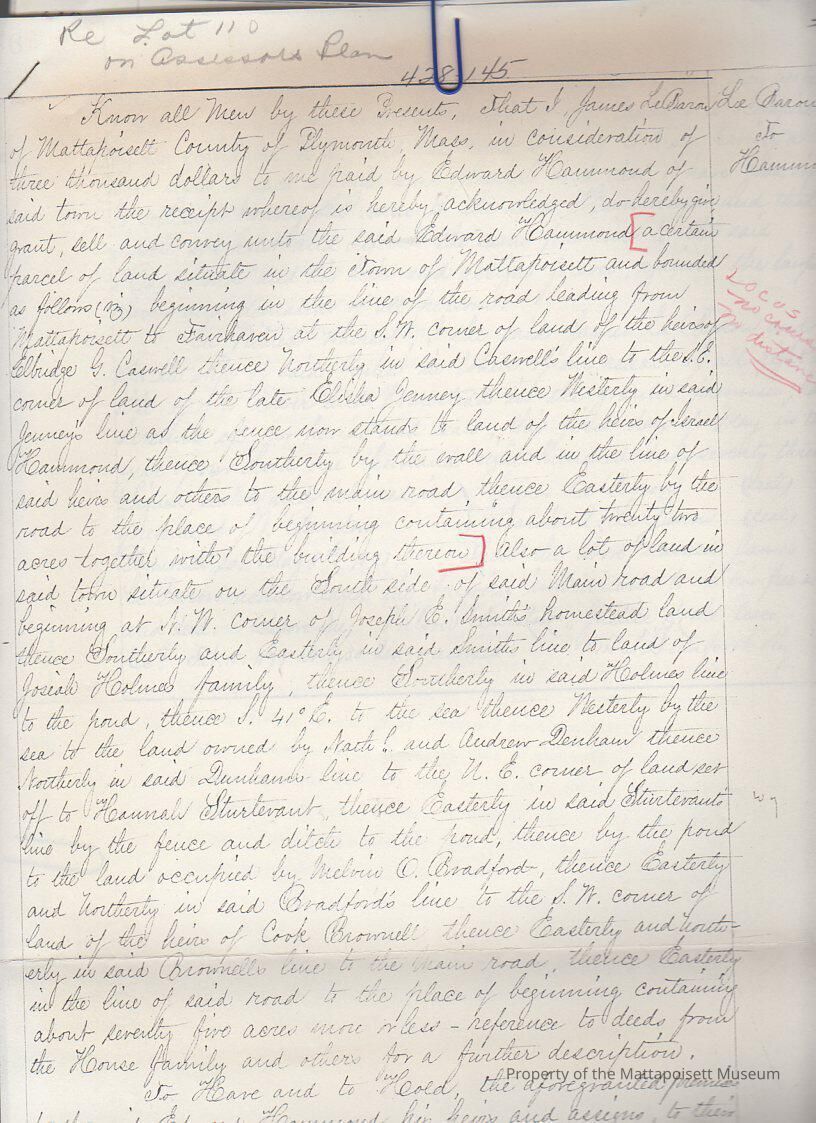 Re Lot 110
on Assessors Plan
428-145
Know all Men by these Presents, that I, James LeBaron
Le Baron
of Mattapoisett County of Plymouth, Mass, in consideration of
To
three thousand dollars to me paid by Edward Hammond of
Hamm
said town the receipt whereof is hereby acknowledged, do hereby give
grant, sell and convey unto the said Edward Hammond [a certain
parcel of land situate in the Town of Mattapoisett and bounded
as follows (viz) beginning in the line of the road leading from
Mattapoisett to Fairhaven at the S.W. corner of land of the heirs of
Elbridge G. Caswell thence Northerly in said Caswell's line to the S.E.
corner of land of the late Elisha Jenney thence Westerly in said
Jenney's line as the fence now stands to land of the heirs of Israel
Hammond, thence Southerly by the wall and in the line of
said heirs and others to the main road thence Easterly by the
road to the place of beginning containing about twenty two
acres together with the building thereon] Also a lot of land in
said town situate on the South side of said Main road and
beginning at N.W. corner of Joseph E. Smith's homestead land
thence Southerly and Easterly in said Smith's line to land of
Josiah Holmes family, thence Southerly in said Holmes line
to the pond, thence S. 41° E. to the sea thence Westerly by the
sea to the land owned by Nath'l and Andrew Denham thence
Northerly in said Dunham's line to the N.E. corner of land set
off to Hannah Sturtevant, thence Easterly in said Sturtevant's
line by the fence and ditch to the pond, thence by the pond
to the land occupied by Melvin O. Bradford, thence Easterly
and Northerly in said Bradford's line to the S.W. corner of
land of the heirs of Cook Brownell thence Easterly and North-
erly in said Brownells line to the Main road, thence Easterly
in the line of said road to the place of beginning containing
about seventy five acres more or less - reference to deeds from
the House family and others for a further description.
To Have and to Hold, the aforegranted premises
Edward Hammond his heirs and assigns, to their
Locus
no course
no distance
Property of the Mattapoisett Museum